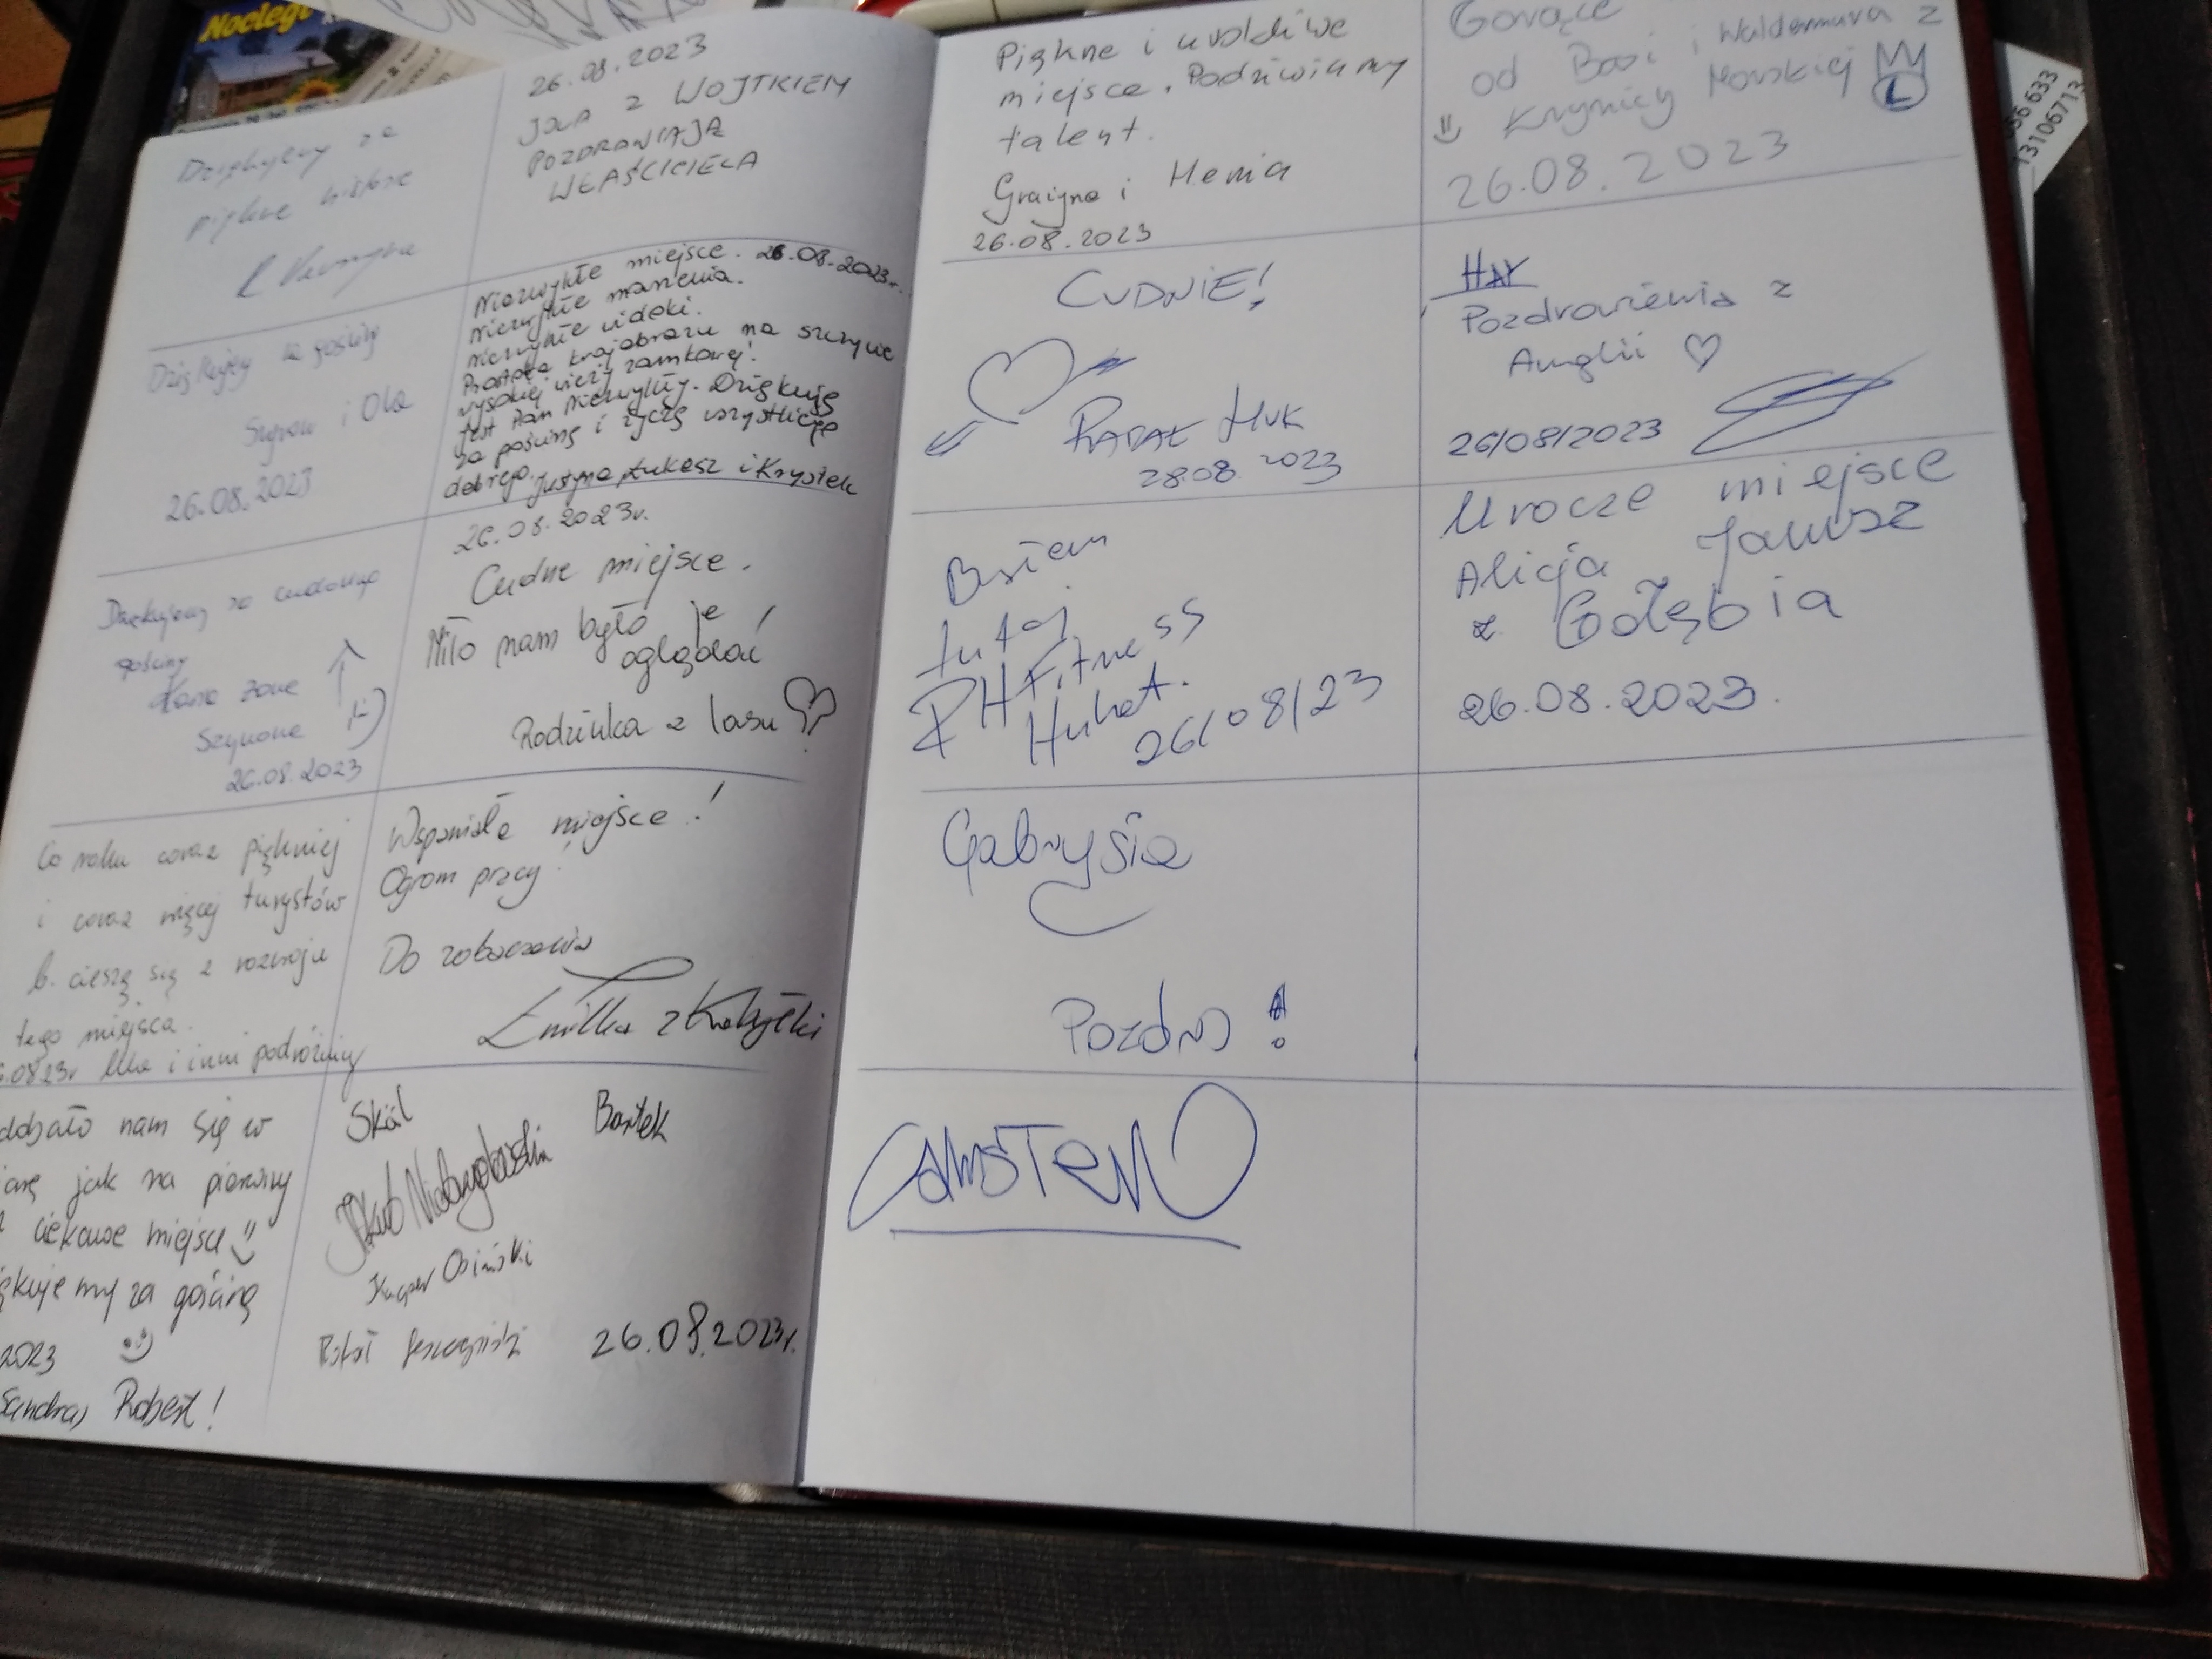 Nocleg
Dziękujemy za
piękne
Dziękujemy za gościnę
Szymon i Ola
26.08.2023
Dziękujemy za cudowną
gościnę
żona
Szymona :-)
26.08.2023
Co roku coraz piękniej
i coraz więcej turystów
b. cieszę się z rozwoju
tego miejsca.
.0823r i inni podróżnicy
dobało nam się w
jak na pierwszy
ciekawe miejsce
kujemy za gościnę
2023
Sandra, Robert!
26.08.2023
JOLA Z WOJTKIEM
POZDRAWIAJĄ
WŁAŚCICIELA
Niezwykłe miejsce. 26.08.2023r.
Niezwykłe marzenia.
Niezwykłe widoki.
krajobrazu na szczycie
wysokiej wieży zamkowej!
Jest Pan Niezwykły. Dziękuję
za gościnę i życzę wszystkiego
dobrego. Justyna, Łukasz i Krystek
26.08.2023r.
Cudne miejsce.
Miło nam było je
oglądać!
Rodzinka z lasu
Wspaniałe miejsce!
Ogrom pracy!
Do zobaczenia
Emilka z Kobyłki
Skál
Bartek
Jakub
Kacper Osiński
Rafał
26.08.2023r.
Piękne i urokliwe
miejsce. Podziwiamy
talent.
Grażyna i Henia
26.08.2023
CUDNIE!
RAFAŁ HUK
28.08.2023
Byłem
tutaj
PH Fitness
Hubert.
26/08/23
Gabrysia
Pozdro!
Gorące
od Basi i Waldemara z
Krynicy Morskiej
L
26.08.2023
Pozdrowienia z
Anglii
26/08/2023
Urocze miejsce
Alicja Janusz
z Gołębia
26.08.2023.
656 633
13106713